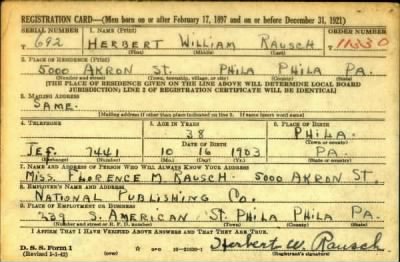 REGISTRATION CARD—(Men born on or after February 17, 1897 and on or before December 31, 1921)
SERIAL NUMBER 1. NAME (Print) ORDER NUMBER
T 692 HERBERT WILLIAM RAUSCH 11330
(First) (Middle) (Last)
2. PLACE OF RESIDENCE (Print)
5000 AKRON ST. PHILA PHILA PA.
(Number and street) (Town, township, village, or city) (County) (State)
[THE PLACE OF RESIDENCE GIVEN ON THE LINE ABOVE WILL DETERMINE LOCAL BOARD
JURISDICTION; LINE 2 OF REGISTRATION CERTIFICATE WILL BE IDENTICAL]
3. MAILING ADDRESS
SAME.
[Mailing address if other than place indicated on line 2. If same insert word same]
4. TELEPHONE 5. AGE IN YEARS 6. PLACE OF BIRTH
38 PHILA.
DATE OF BIRTH (Town or county)
JEF. 7441 10 16 1903 PA.
(Exchange) (Number) (Mo.) (Day) (Yr.) (State or country)
7. NAME AND ADDRESS OF PERSON WHO WILL ALWAYS KNOW YOUR ADDRESS
MISS. FLORENCE M. RAUSCH. 5000 AKRON ST.
8. EMPLOYER'S NAME AND ADDRESS
NATIONAL PUBLISHING CO.
9. PLACE OF EMPLOYMENT OR BUSINESS
239 S. AMERICAN ST. PHILA PHILA PA.
(Number and street or R. F. D. number) (Town) (County) (State)
I AFFIRM THAT I HAVE VERIFIED ABOVE ANSWERS AND THAT THEY ARE TRUE.
D. S. S. Form 1 Herbert W. Rausch
(Registrant's signature)